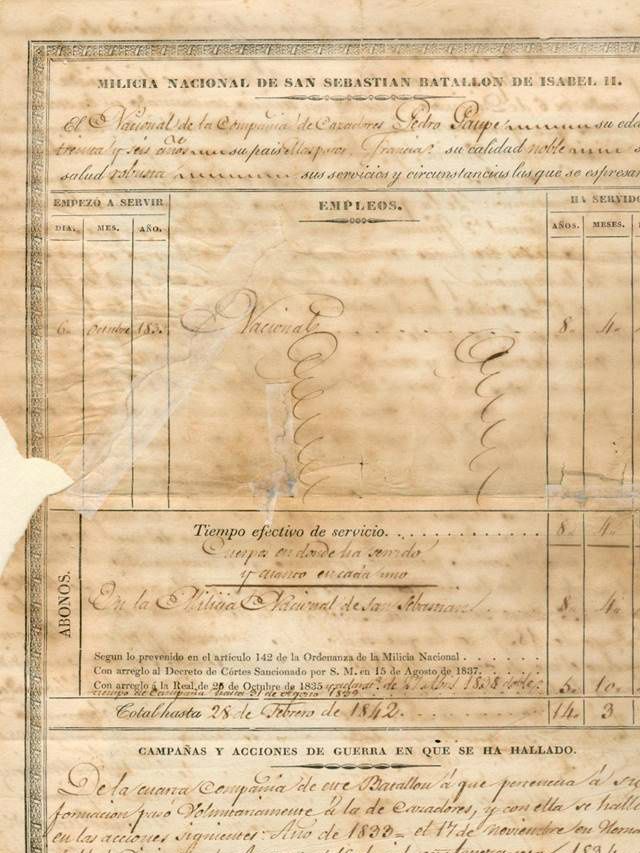 MILICIA NACIONAL DE SAN SEBASTIAN BATALLON DE ISABEL II.
El Nacional de la Compañia de Cazadores Pedro su eda
treinta y seis años su pais Francia su calidad noble s
salud robusta sus servicios y circunstancias las que se espresan
EMPEZÓ A SERVIR EMPLEOS. HA SERVIDO
DIA. MES. AÑO. AÑOS. MESES.
6 Octubre 183 Nacional 8 4
ABONOS.
Tiempo efectivo de servicio. 8 4
Cuerpos en donde ha servido
y cuanto en cada uno
En la Milicia Nacional de San Sebastian 8 4
Segun lo prevenido en el artículo 142 de la Ordenanza de la Milicia Nacional
Con arreglo al Decreto de Córtes Sancionado por S. M. en 15 de Agosto de 1837.
Con arreglo á la Real de 20 de Octubre de 1835 de 1838 doble 5 10
tiempo de Campaña hasta 31 de Agosto 1839
Total hasta 28 de Febrero de 1842. 14 3
CAMPAÑAS Y ACCIONES DE GUERRA EN QUE SE HA HALLADO.
De la cuarta Compañia de este Batallon á que pertenecia á su
formacion pasó Voluntariamente á la de Cazadores, y con ella se halló
en las acciones siguientes: Año de 1833 = el 17 de noviembre en Hernan